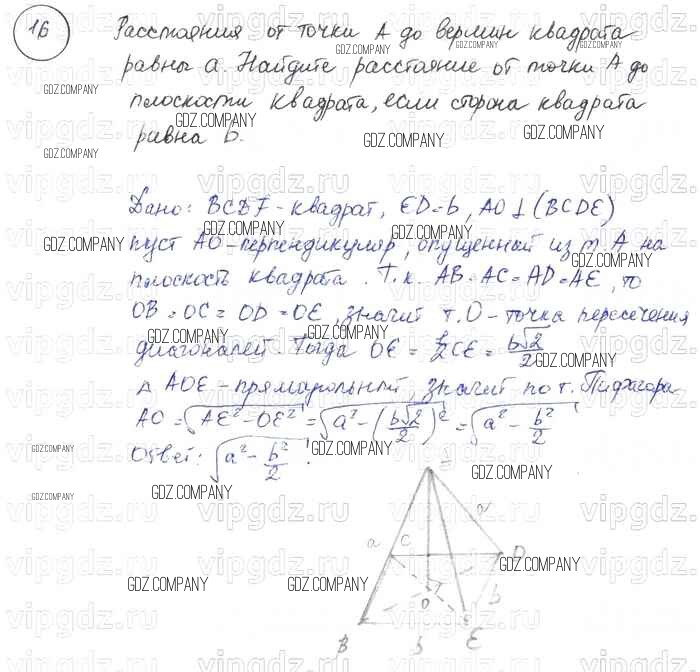 16
Расстояния от точки А до вершин квадрата
равны а. Найдите расстояние от точки А до
плоскости квадрата, если сторона квадрата
равна b.
Дано: BCDF - квадрат, ED=b, AO⊥(BCDE)
пуст АО - перпендикуляр, опущенный из т. А на
плоскость квадрата. Т.к. AB=AC=AD=AE, то
OB=OC=OD=OE, значит т.О - точка пересечения
диагоналей. Тогда OE = 1/2 CE = b√2/2
Δ AOE - прямоугольный, значит по т. Пифагора
AO = √(AE² - OE²) = √(a² - (b√2/2)²) = √(a² - b²/2)
Ответ: √(a² - b²/2).
a
a
C
D
O
b
B
b
E
GDZ.COMPANY
vipgdz.ru